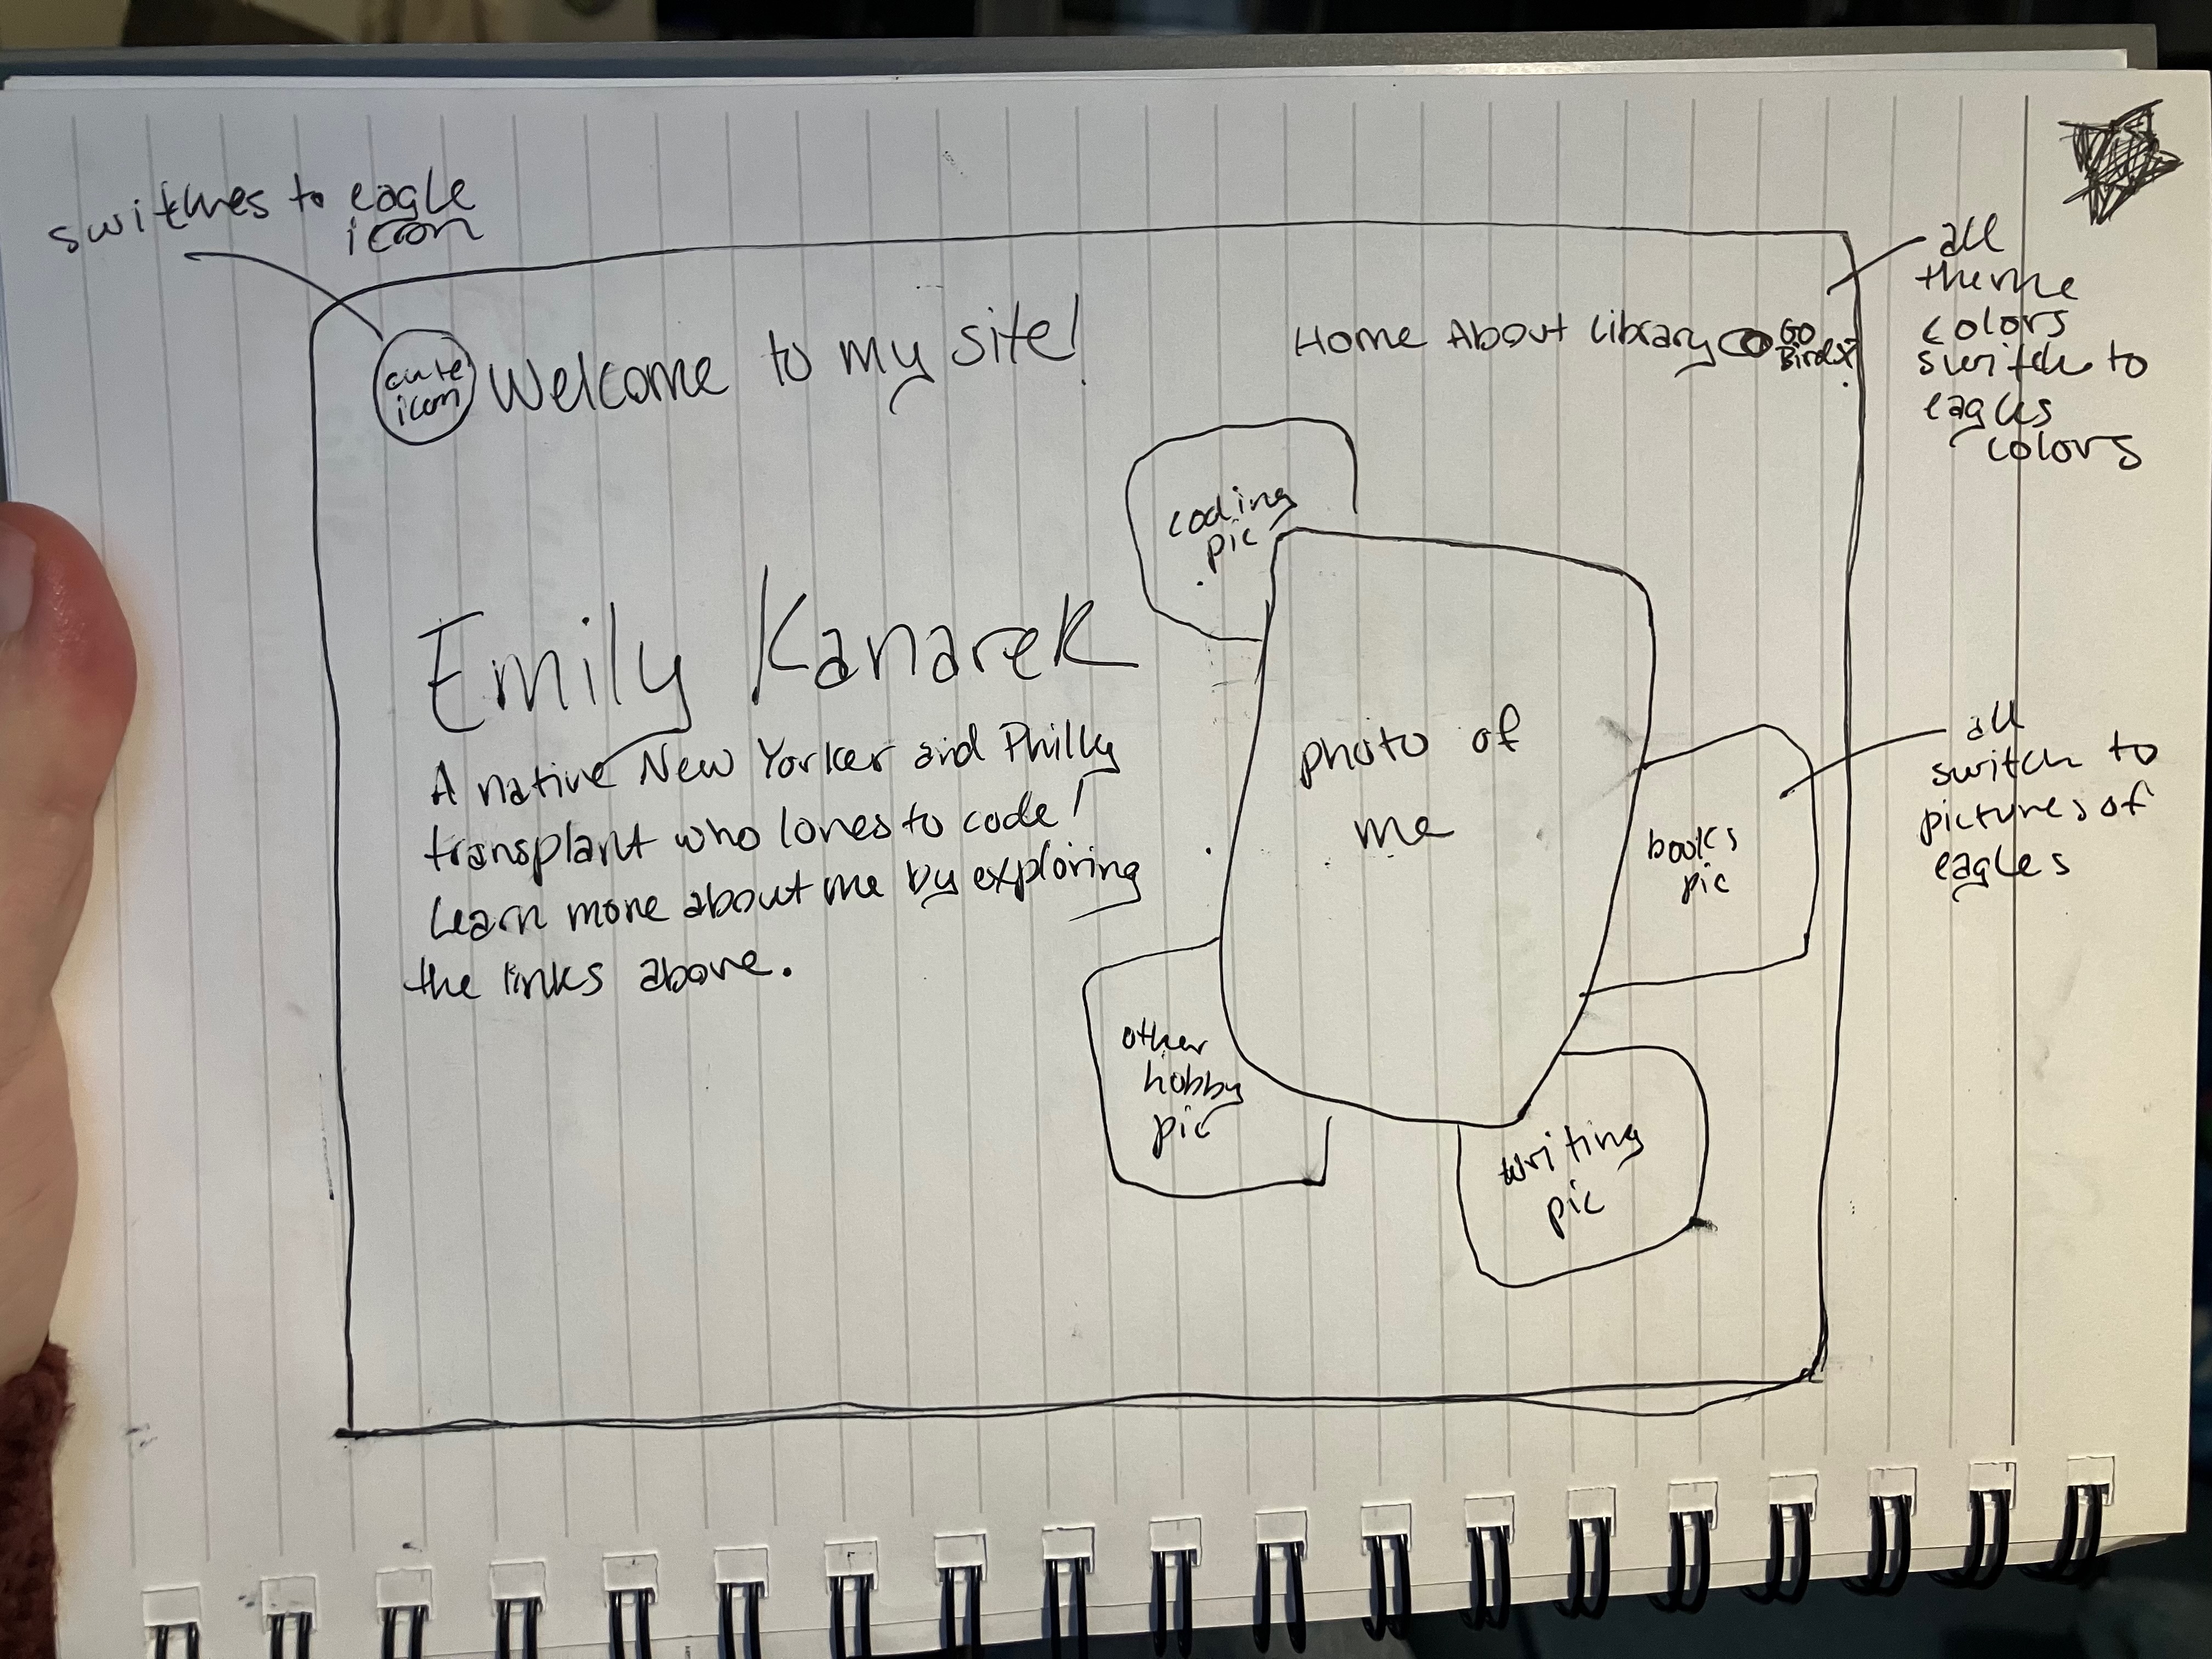 switches to eagle
icon
cute
icon
Welcome to my site!
Home About Library
Go
Birds!
all
theme
colors
switch to
eagles
colors
coding
pic
Emily Kanarek
A native New Yorker and Philly
transplant who loves to code!
Learn more about me by exploring
the links above.
photo of
me
books
pic
all
switch to
pictures of
eagles
other
hobby
pic
writing
pic